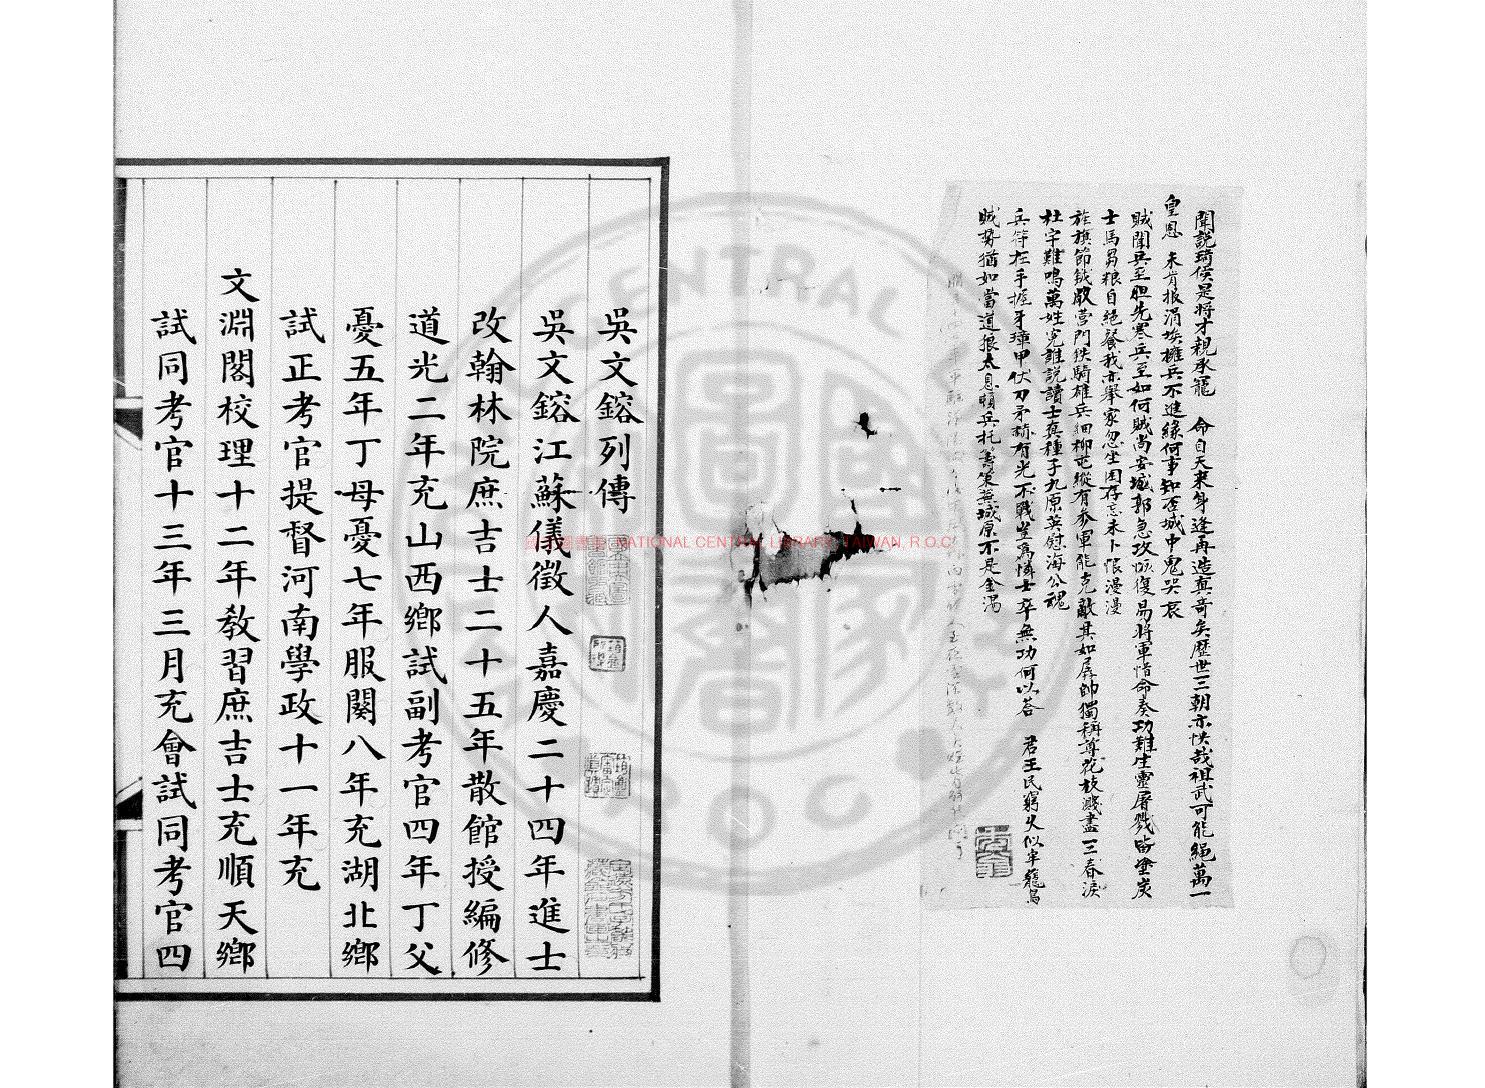 聞説琦侯是將才親承寵　命自天來身逢再造真奇矣歷世三朝亦快哉祖武可能繩萬一
皇恩　未肯报涓埃擁兵不進緣何事知否城中鬼哭哀
賊聞兵至胆先寒兵至如何賊尚安城郭急攻恢復易將軍惜命奏功難生靈屠戮皆塗炭
士馬芻粮自絶餐我亦舉家忽坐困存忘未卜恨漫漫
旌旗節鉞啟營門鉄騎雄兵細柳屯縱有參軍能克敵其如孱帥獨稱尊花枝濺盡三春淚
杜宇難鳴萬姓寃誰説讀士真種子九原英慰海公魂
兵符在手握牙璋甲仗刀矛耀有光不戰坐為憐士卒無功何以荅　君王民窮火似牢籠鳥
賊势猶如當道狼太息賴兵托籌策蕪城原不是金湯
吳文鎔列傳
吳文鎔江蘇儀徵人嘉慶二十四年進士
改翰林院庶吉士二十五年散館授編修
道光二年充山西鄉試副考官四年丁父
憂五年丁母憂七年服闋八年充湖北鄉
試正考官提督河南學政十一年充
文淵閣校理十二年教習庶吉士充順天鄉
試同考官十三年三月充會試同考官四
國家圖書館 NATIONAL CENTRAL LIBRARY, TAIWAN, R.O.C